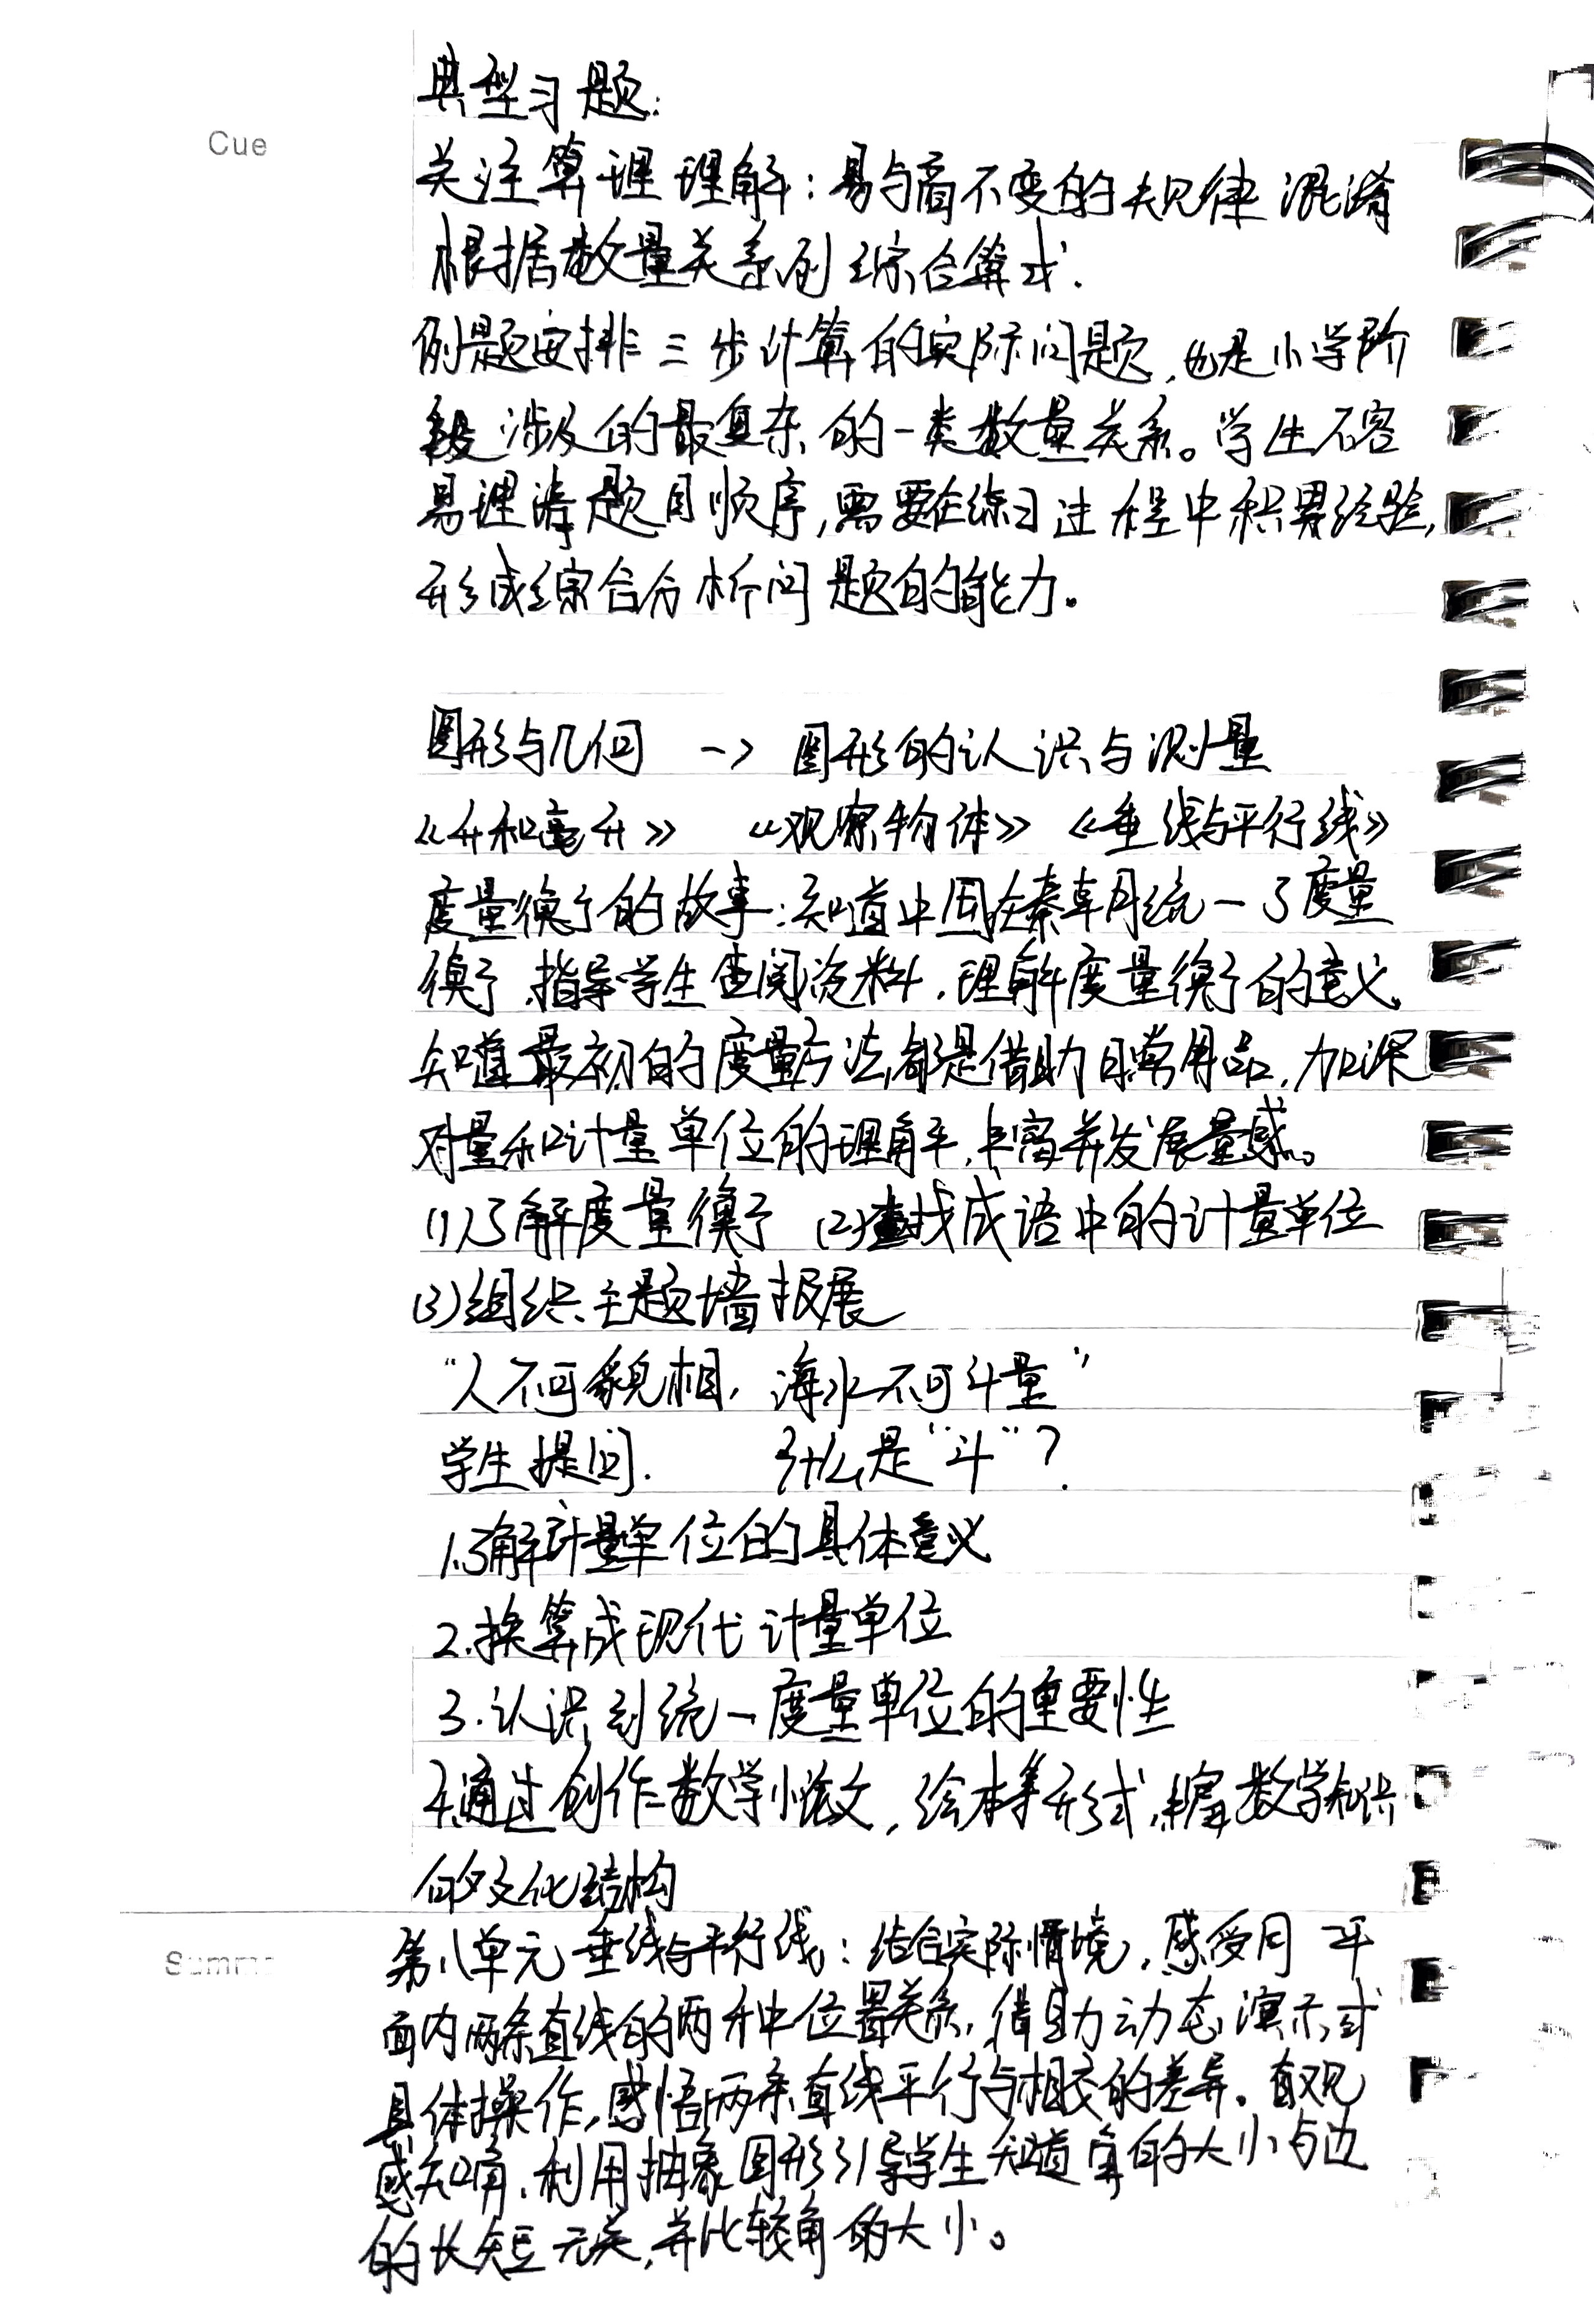 典型习题:
Cue
关注算理理解:易与商不变的规律混淆
根据数量关系列综合算式.
例题安排三步计算的实际问题,也是小学阶
段涉及的最复杂的一类数量关系。学生不容
易理清题目顺序,需要在练习过程中积累经验,
形成综合分析问题的能力。
图形与几何 -> 图形的认识与测量
《升和毫升》 《观察物体》 《垂线与平行线》
度量衡的故事:知道中国在秦朝统一了度量
衡,指导学生查阅资料,理解度量衡的意义,
知道最初的度量方法都是借助日常用品,加深
对量和计量单位的理解,丰富并发展量感。
(1)了解度量衡 (2)查找成语中的计量单位
(3)组织主题墙报展
“人不可貌相,海水不可斗量”
学生提问. 什么是“斗”?
1.了解计量单位的具体意义
2.换算成现代计量单位
3.认识到统一度量单位的重要性
4.通过创作数学小论文,绘本等形式,丰富数学知识
的文化结构
Summa
第八单元垂线与平行线:结合实际情境,感受同一平
面内两条直线的两种位置关系,借助动态演示或
具体操作,感悟两条直线平行与相交的差异。直观
感知角,利用抽象图形引导学生知道角的大小与边
的长短无关,并比较角的大小。